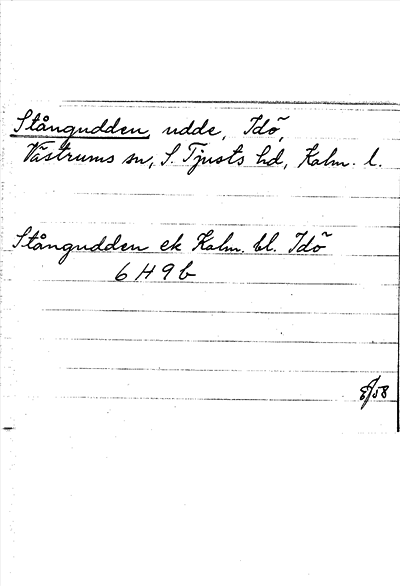 Stångudden, udde, Idö,
Västrums sn, S. Tjusts hd, Kalm. l.
Stångudden ek Kalm. bl. Idö
6 H 9 b
8/58